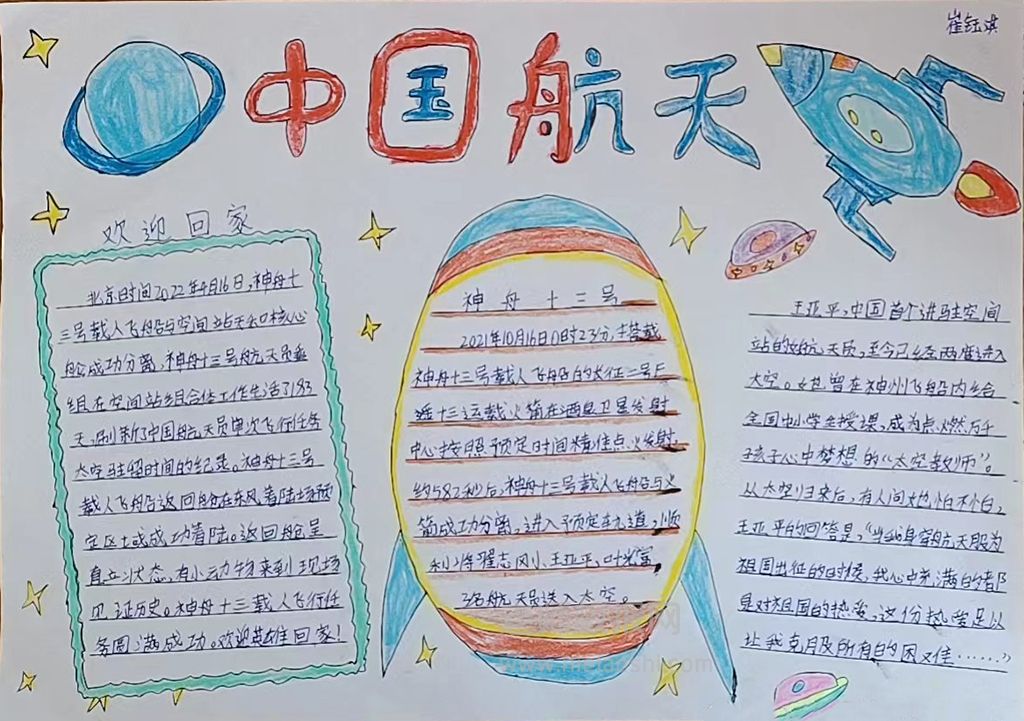 崔钰淇
中国航天
欢迎回家
北京时间2022年4月16日,神舟十
三号载人飞船与空间站天和核心
舱成功分离,神舟十三号航天员乘
组在空间站组合体工作生活了183
天,刷新了中国航天员单次飞行任务
太空驻留时间的纪录。神舟十三号
载人飞船返回舱在东风着陆场预
定区域成功着陆。返回舱呈
直立状态,有小动物来到现场
见证历史。神舟十三载人飞行任
务圆满成功。欢迎英雄回家!
神舟十三号
2021年10月16日0时23分,搭载
神舟十三号载人飞船的长征二号F
遥十三运载火箭在酒泉卫星发射
中心按照预定时间精准点火发射,
约582秒后,神舟十三号载人飞船与火
箭成功分离,进入预定轨道,顺
利将翟志刚、王亚平、叶光富
3名航天员送入太空。
王亚平,中国首个进驻空间
站的女航天员,至今已经两度进入
太空。她曾在神州飞船内给
全国中小学生授课,成为点燃万千
孩子心中梦想的“太空教师”。
从太空归来后,有人问她怕不怕,
王亚平的回答是,“当我身穿航天服为
祖国出征的时候,我心中充满的都
是对祖国的热爱,这份热爱足以
让我克服所有的困难……”